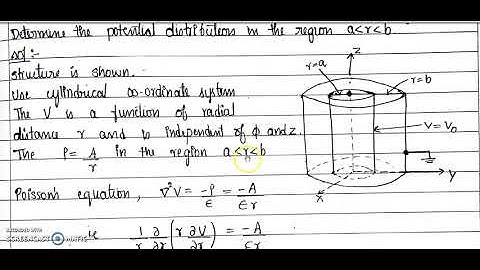 Determine the potential distributions in the region a<r<b
sol:-
structure is shown.
Use cylindrical co-ordinate system
The V is a function of radial
distance r and is independent of ϕ and z.
The ρ = A/r in the region a<r<b
Poisson's equation, ∇²V = -ρ/ε = -A/εr
1/r ∂/∂r (r ∂V/∂r) = -A/εr
z
r=a
r=b
V=V₀
y
x
RECORDED WITH
SCREENCAST MATIC